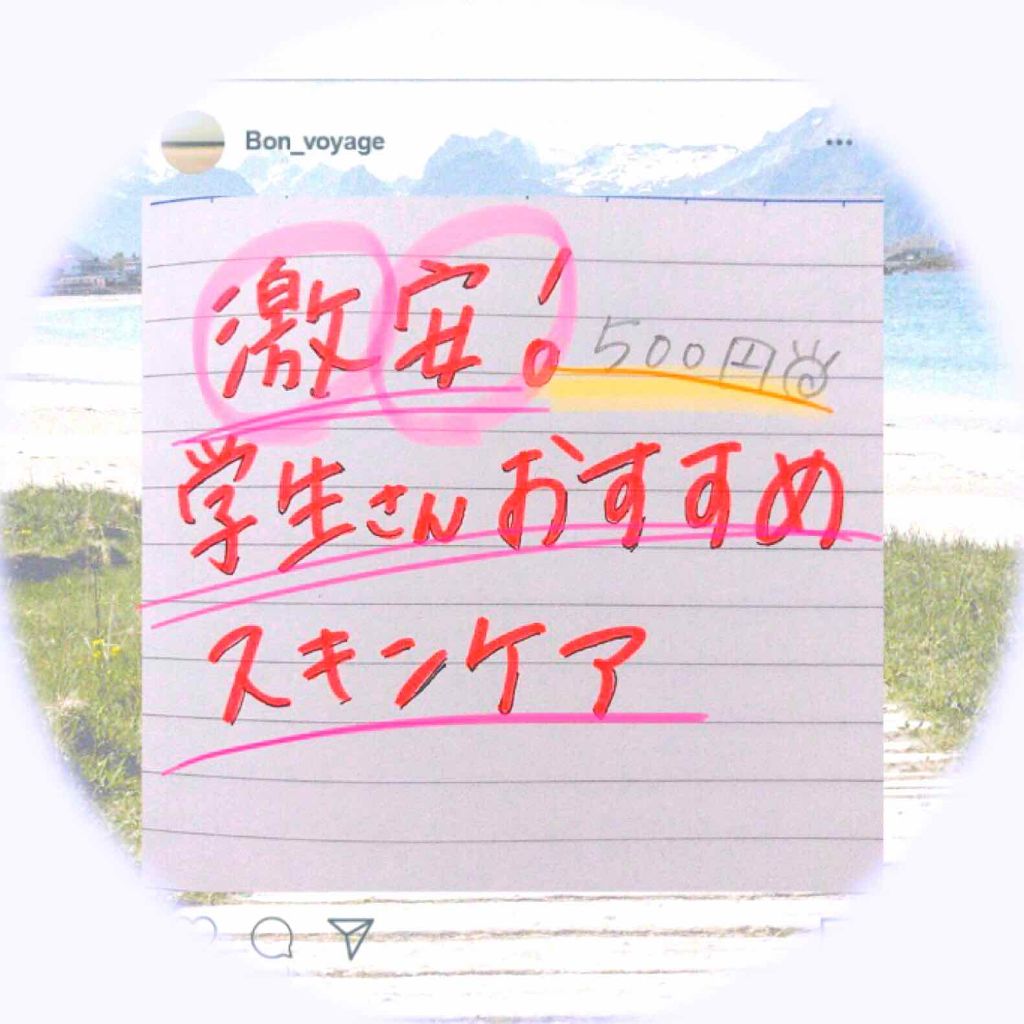 Bon_voyage
激安! 500円
学生さんおすすめ
スキンケア